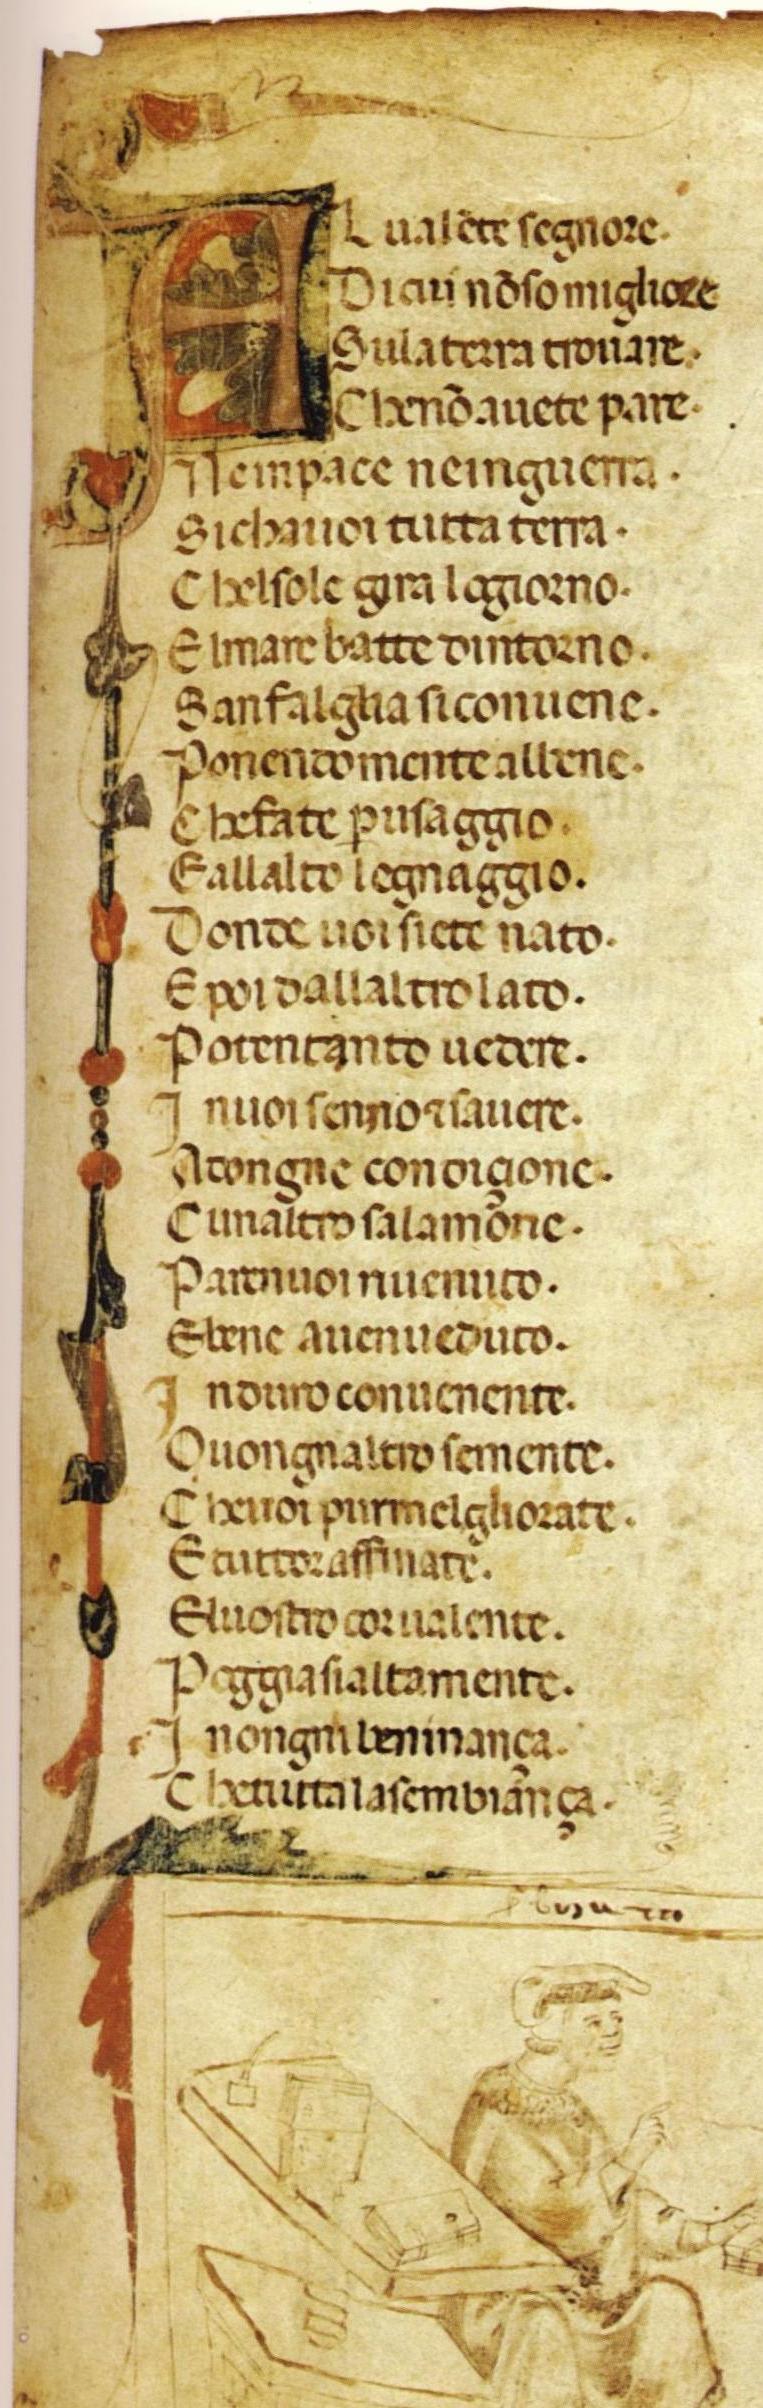 Al ualēte segnore.
Di cui nō so migliore
Sula terra trouare.
Che nō auete pare.
Ne inpace ne inguerra.
Sicha uoi tutta terra.
Chel sole gira logiorno.
El mare batte dintorno.
San falglia siconuene.
Ponendo mente albene.
Che fate ꝑ usaggio.
E allalto legnaggio.
Donde uoi siete nato.
E poi dallaltro lato.
Potentanto uedere.
In uoi senno ⁊ sauere.
Adongne condiçione.
Cunaltro salamōne.
Pare nuoi nuenuto.
E bene auen ueduto.
In duro conuenente.
Ouongnaltro semente.
Che uoi pur melgliorate.
E tuttor affinate.
El uostro cor ualente.
Poggia sialtamente.
In ongni beninança.
Che tutta la sembiança.